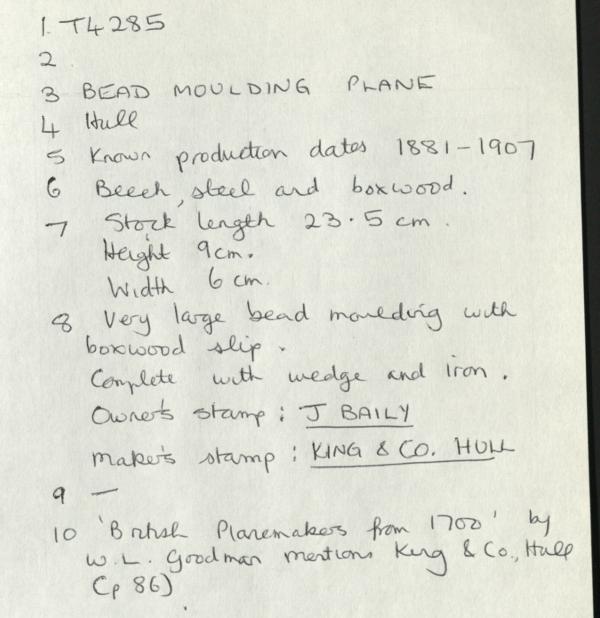 1. T4285
2
3 BEAD MOULDING PLANE
4 Hull
5 Known production dates 1881-1907
6 Beech, steel and boxwood.
7 Stock length 23.5 cm.
Height 9cm.
Width 6 cm.
8 Very large bead moulding with
boxwood slip.
Complete with wedge and iron.
Owner's stamp: J BAILY
Maker's stamp: KING & CO. HULL
9 —
10 'British Planemakers from 1700' by
W. L. Goodman mentions King & Co., Hull
(p 86)